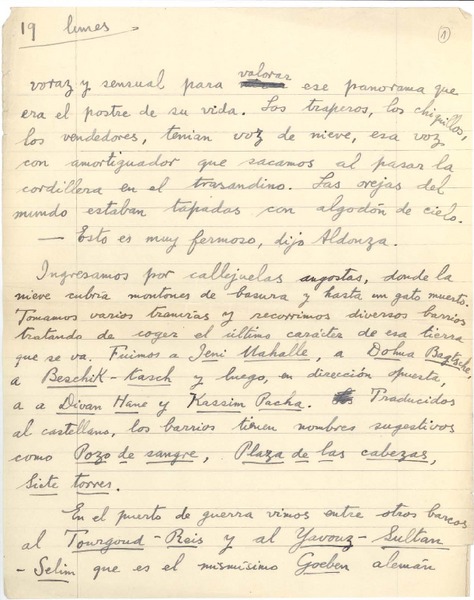 19 lunes
1
voraz y sensual para valorar ese panorama que
era el postre de su vida. Los traperos, los chiquillos,
los vendedores, tenian voz de nieve, esa voz
con amortiguador que sacamos al pasar la
cordillera en el trasandino. Las orejas del
mundo estaban tapadas con algodón de cielo.
— Esto es muy fermoso, dijo Aldonza.
Ingresamos por callejuelas angostas, donde la
nieve cubría montones de basura y hasta un gato muerto.
Tomamos varios tranvías y recorrimos diversos barrios
tratando de coger el último carácter de esa tierra
que se va. Fuimos a Jeni Mahalle, a Dolma Bagtsche,
a Beschik-Tasch y luego, en dirección opuesta,
a a Divan Hane y Kassim Pacha. Traducidos
al castellano, los barrios tienen nombres sugestivos
como Pozo de sangre, Plaza de las cabezas,
Siete torres.
En el puerto de guerra vimos entre otros barcos
al Tourgoud-Reis y al Yavouz-Sultan
-Selim que es el mismísimo Goeben alemán